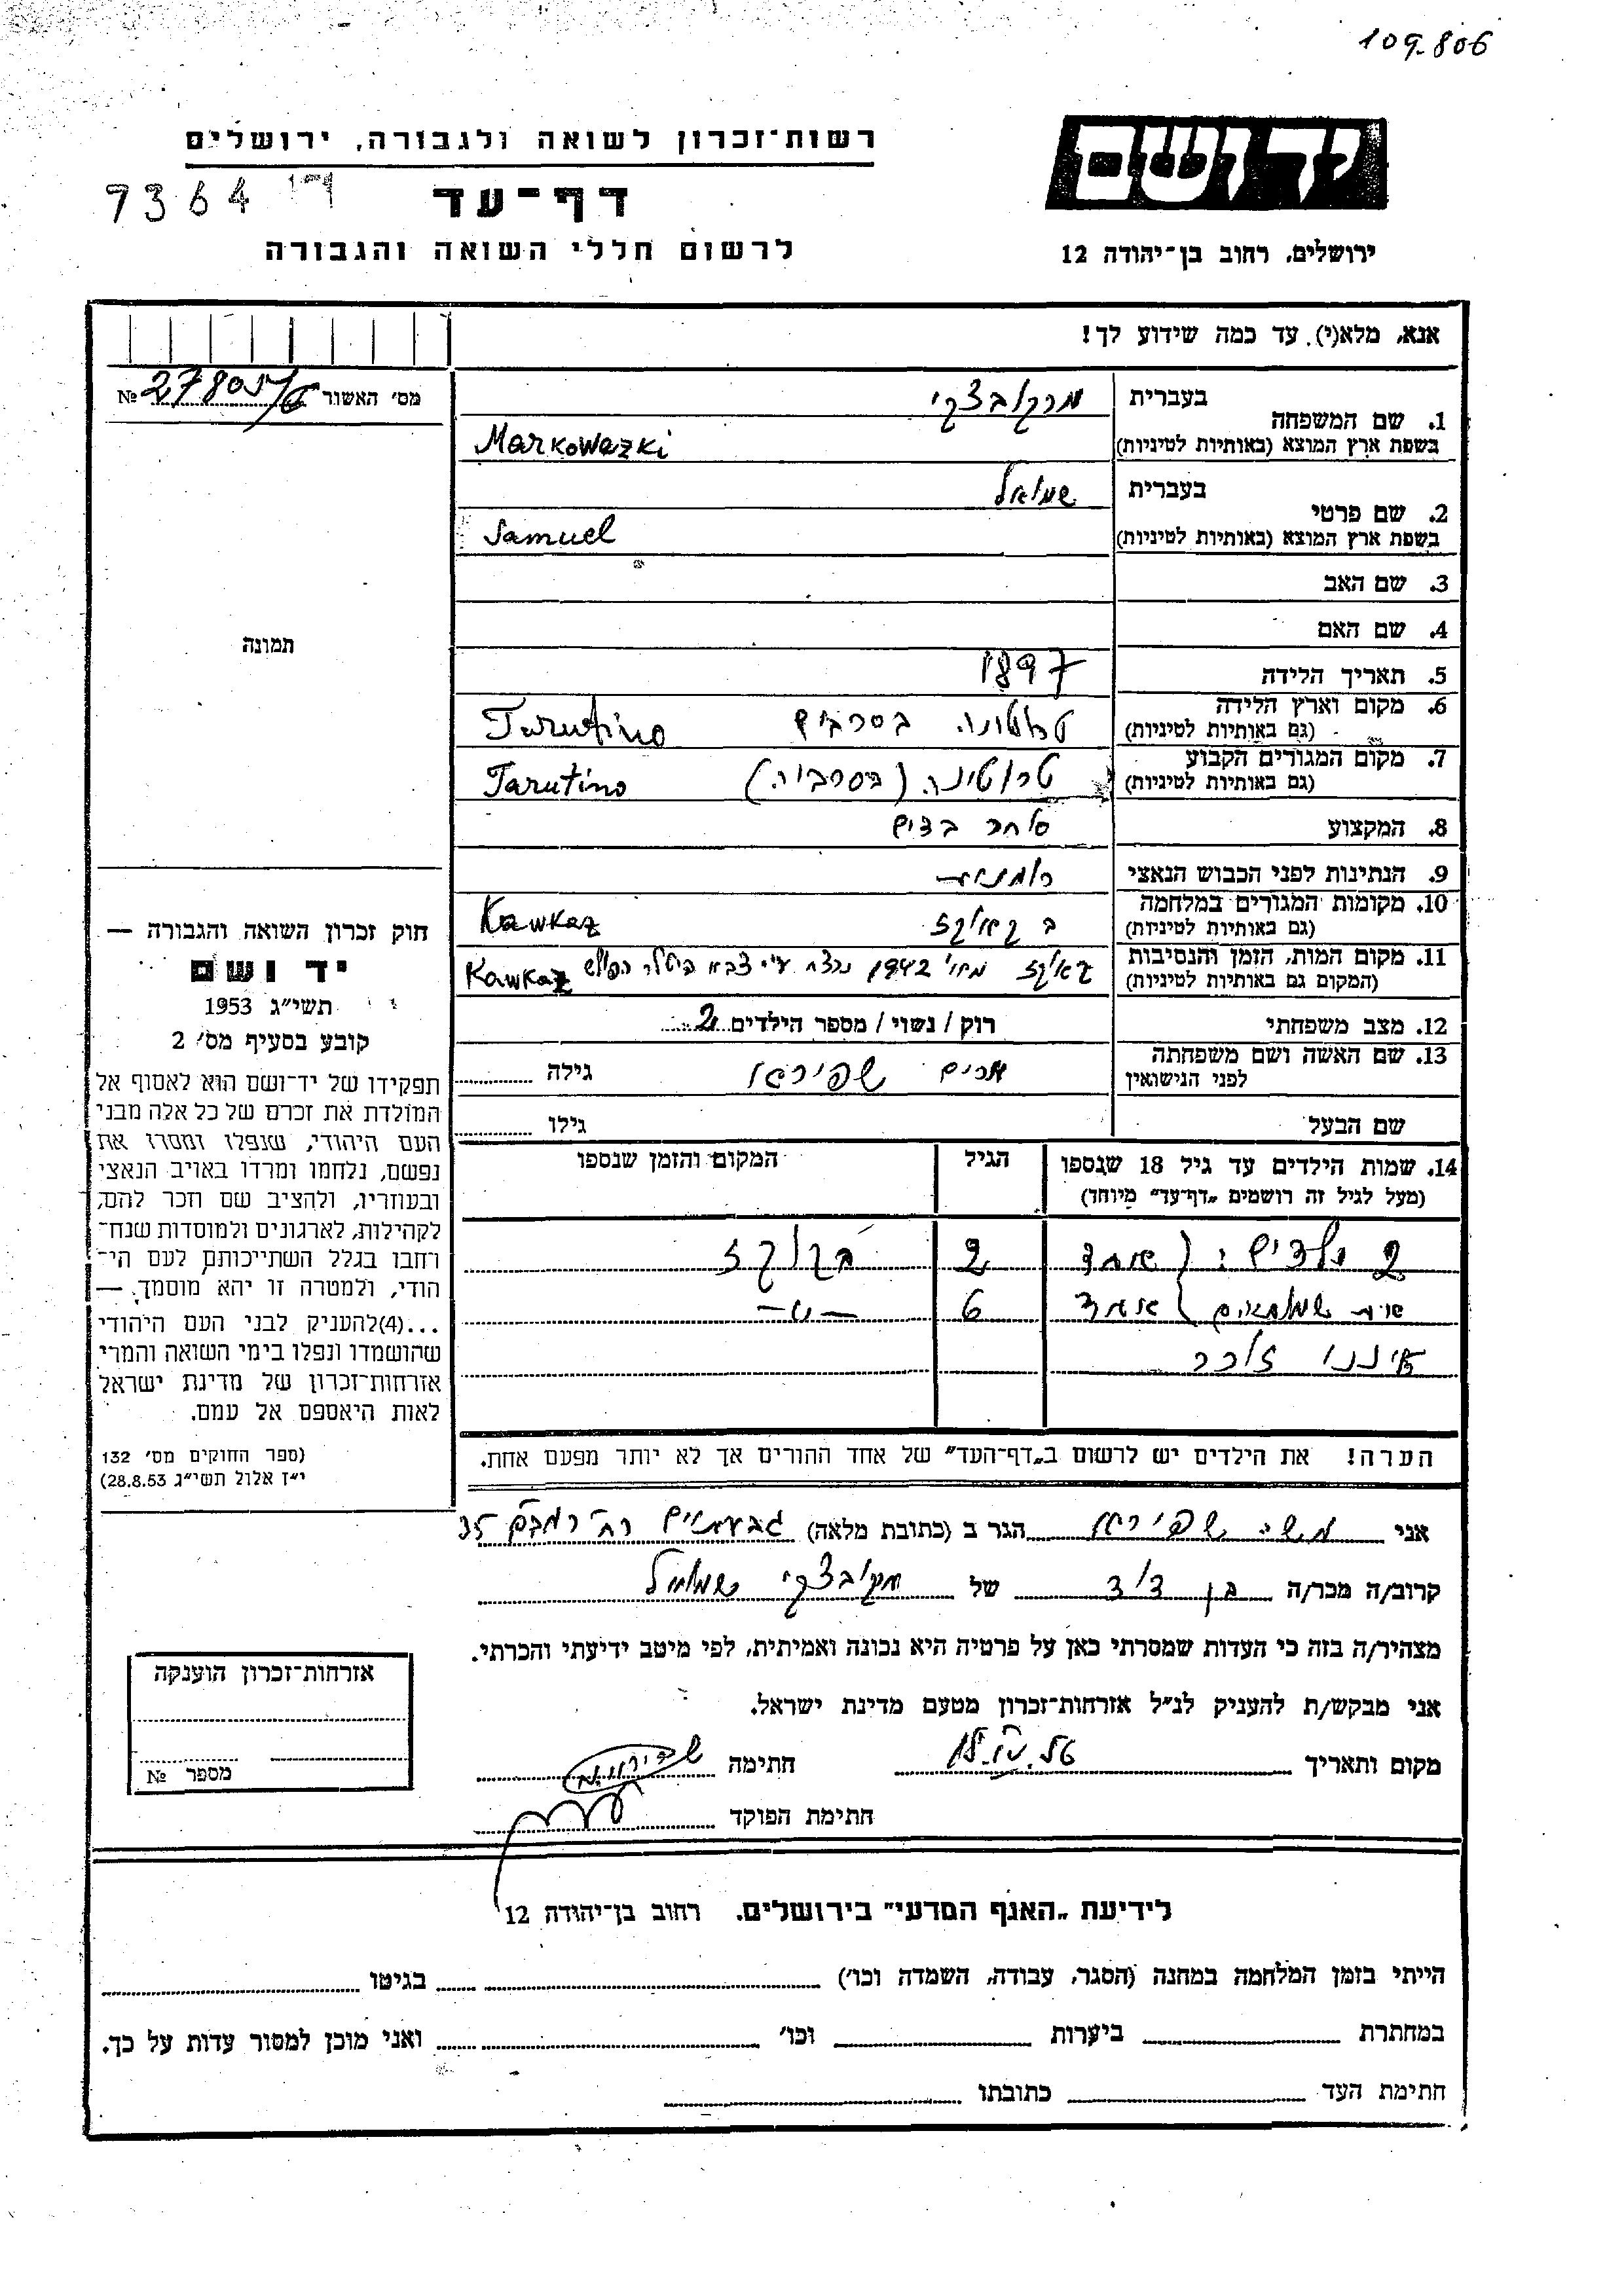 109.806
יד ושם
ירושלים, רחוב בן־יהודה 12
רשות־זכרון לשואה ולגבורה, ירושלים
דף־עד
7364
לרשום חללי השואה והגבורה
אנא, מלא(י). עד כמה שידוע לך!
מס׳ האשור № 27805/6
תמונה
1. שם המשפחה בעברית מרקובצקי
בשפת ארץ המוצא (באותיות לטיניות) Markowazki
2. שם פרטי בעברית שמואל
בשפת ארץ המוצא (באותיות לטיניות) Samuel
3. שם האב
4. שם האם
5. תאריך הלידה 1897
6. מקום וארץ הלידה
(גם באותיות לטיניות) Tarutino
7. מקום המגורים הקבוע
(גם באותיות לטיניות) טרוטינה (בסרביה) Tarutino
8. המקצוע סוחר בצים
9. הנתינות לפני הכבוש הנאצי
10. מקומות המגורים במלחמה
(גם באותיות לטיניות) Kawkaz
11. מקום המות, הזמן והנסיבות
(המקום גם באותיות לטיניות) 1942 נרצח ע״י צבא היטלר Kawkaz
12. מצב משפחתי רוק / נשוי / מספר הילדים 2
13. שם האשה ושם משפחתה
לפני הנישואין שפירא גילה
שם הבעל גילו
14. שמות הילדים עד גיל 18 שנספו הגיל המקום והזמן שנספו
(מעל לגיל זה רושמים „דף־עד״ מיוחד)
2 ילדים: אחד 2 קוקז
6 — " —
אינני זוכר
הערה! את הילדים יש לרשום ב„דף־העד״ של אחד ההורים אך לא יותר מפעם אחת.
אני משה שפירא הגר ב (כתובת מלאה) גבעתיים רח׳ רמב״ם 35
קרוב/ה מכר/ה בן דוד של מרקובצקי שמואל
מצהיר/ה בזה כי העדות שמסרתי כאן על פרטיה היא נכונה ואמיתית, לפי מיטב ידיעתי והכרתי.
אני מבקש/ת להעניק לנ״ל אזרחות־זכרון מטעם מדינת ישראל.
מקום ותאריך חתימה
חתימת הפוקד
חוק זכרון השואה והגבורה —
יד ושם
תשי״ג 1953
קובע בסעיף מס׳ 2
תפקידו של יד־ושם הוא לאסוף אל
המולדת את זכרם של כל אלה מבני
העם היהודי, שנפלו ומסרו את
נפשם, נלחמו ומרדו באויב הנאצי
ובעוזריו, ולהציב שם וזכר להם,
לקהילות, לארגונים ולמוסדות שנח־
רחבו בגלל השתייכותם לעם הי־
הודי, ולמטרה זו יהא מוסמך. —
...(4)להעניק לבני העם היהודי
שהושמדו ונפלו בימי השואה והמרי
אזרחות־זכרון של מדינת ישראל
לאות היאספם אל עמם.
(ספר החוקים מס׳ 132
י״ז אלול תשי״ג 28.8.53)
אזרחות־זכרון הוענקה
מספר №
לידיעת „האגף המדעי״ בירושלים, רחוב בן־יהודה 12
הייתי בזמן המלחמה במחנה (הסגר, עבודה, השמדה וכו׳) בגיטו
במחתרת ביערות וכו׳ ואני מוכן למסור עדות על כך.
חתימת העד כתובתו